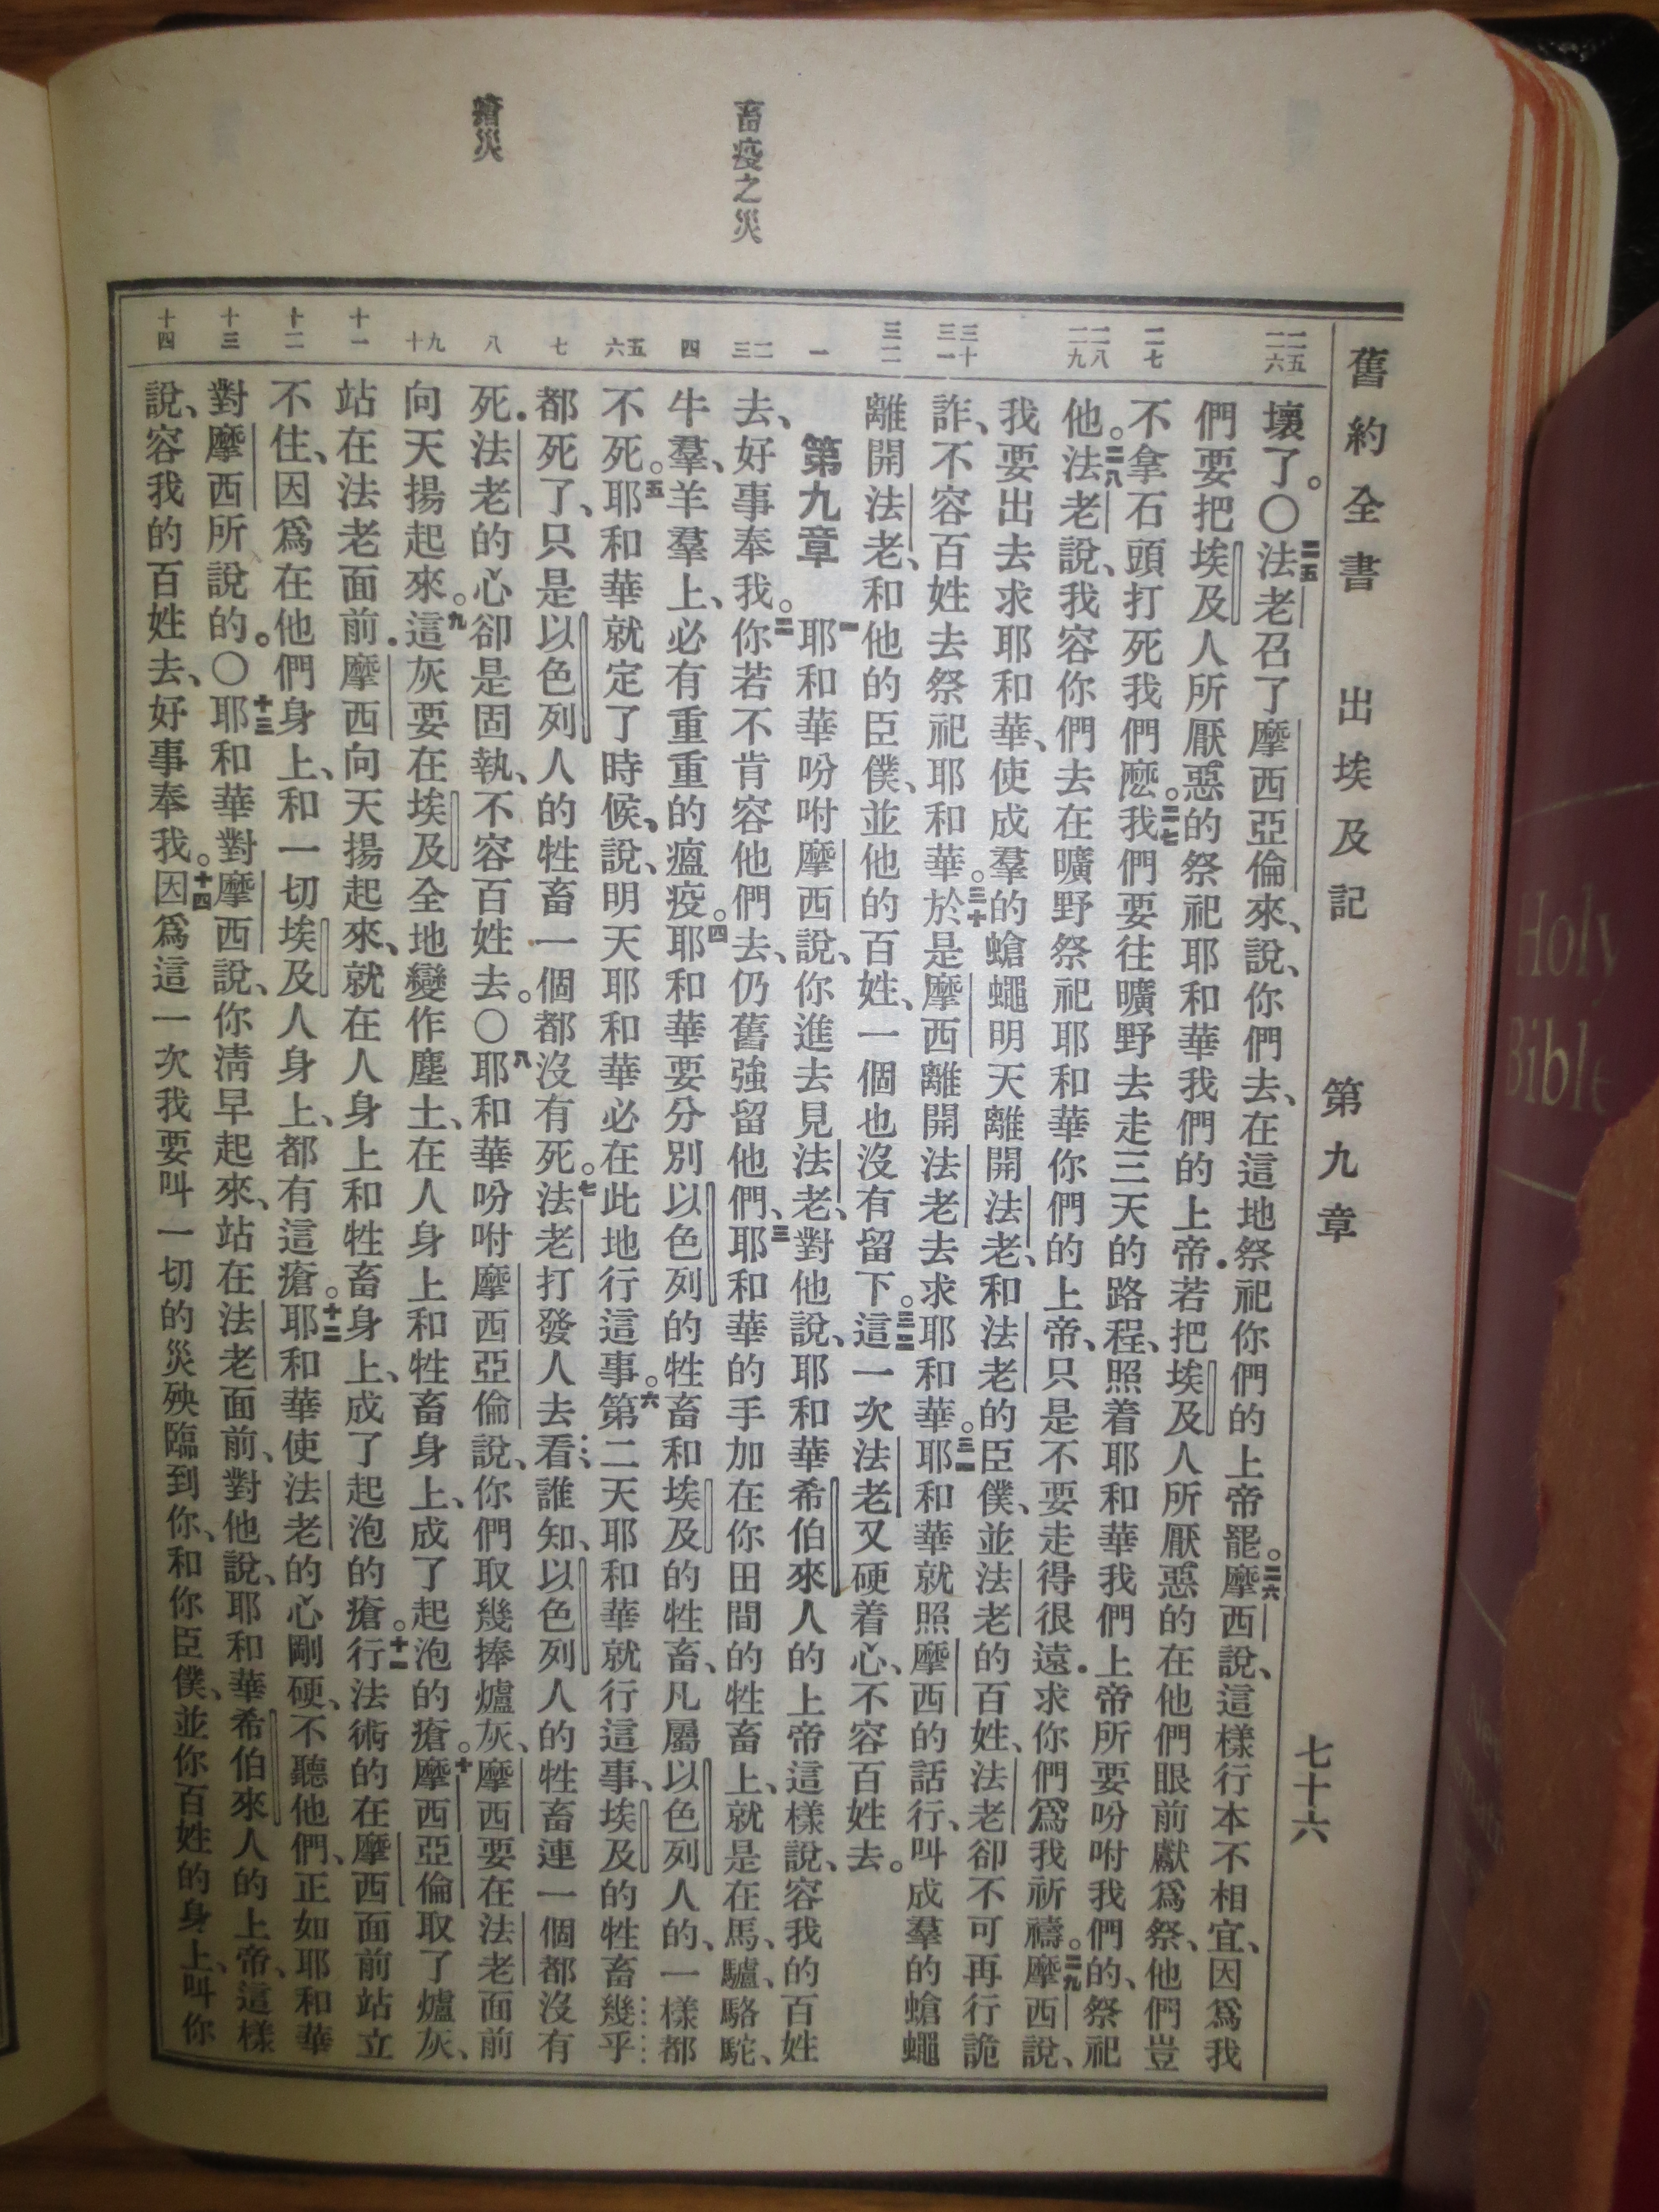 舊約全書 出埃及記 第九章 七十六
畜疫之災
瘡災
二五 二六 二七 二八 二九 三十 三一 三二 一 二 三 四 五 六 七 八 九 十 十一 十二 十三 十四
壞了。〇二五法老召了摩西亞倫來、說、你們去、在這地祭祀你們的上帝罷。二六摩西說、這樣行本不相宜、因爲我
們要把埃及人所厭惡的祭祀耶和華我們的上帝．若把埃及人所厭惡的在他們眼前獻爲祭、他們豈
不拿石頭打死我們麽。二七我們要往曠野去走三天的路程、照着耶和華我們上帝所要吩咐我們的、祭祀
他。二八法老說、我容你們去在曠野祭祀耶和華你們的上帝、只是不要走得很遠．求你們爲我祈禱。二九摩西說、
我要出去求耶和華、使成羣的蠅蠅明天離開法老、和法老的臣僕、並法老的百姓、法老卻不可再行詭
詐、不容百姓去祭祀耶和華。三十於是摩西離開法老去求耶和華。三一耶和華就照摩西的話行、叫成羣的蒼蠅
離開法老、和他的臣僕、並他的百姓、一個也沒有留下。三二這一次法老又硬着心、不容百姓去。
第九章 一耶和華吩咐摩西說、你進去見法老、對他說、耶和華希伯來人的上帝這樣說、容我的百姓
去、好事奉我。二你若不肯容他們去、仍舊強留他們、三耶和華的手加在你田間的牲畜上、就是在馬、驢、駱駝、
牛羣、羊羣上、必有重重的瘟疫。四耶和華要分別以色列的牲畜和埃及的牲畜、凡屬以色列人的、一樣都
不死。五耶和華就定了時候、說、明天耶和華必在此地行這事。六第二天耶和華就行這事、埃及的牲畜幾乎
都死了、只是以色列人的牲畜一個都沒有死。七法老打發人去看、誰知、以色列人的牲畜連一個都沒有
死．法老的心卻是固執、不容百姓去。〇八耶和華吩咐摩西亞倫說、你們取幾捧爐灰、摩西要在法老面前
向天揚起來。九這灰要在埃及全地變作塵土、在人身上和牲畜身上、成了起泡的瘡。十摩西亞倫取了爐灰、
站在法老面前．摩西向天揚起來、就在人身上和牲畜身上、成了起泡的瘡。十一行法術的在摩西面前站立
不住、因爲在他們身上、和一切埃及人身上、都有這瘡。十二耶和華使法老的心剛硬、不聽他們、正如耶和華
對摩西所說的。〇十三耶和華對摩西說、你淸早起來、站在法老面前、對他說、耶和華希伯來人的上帝、這樣
說、容我的百姓去、好事奉我。十四因爲這一次我要叫一切的災殃臨到你、和你臣僕、並你百姓的身上、叫你
Holy
Bible